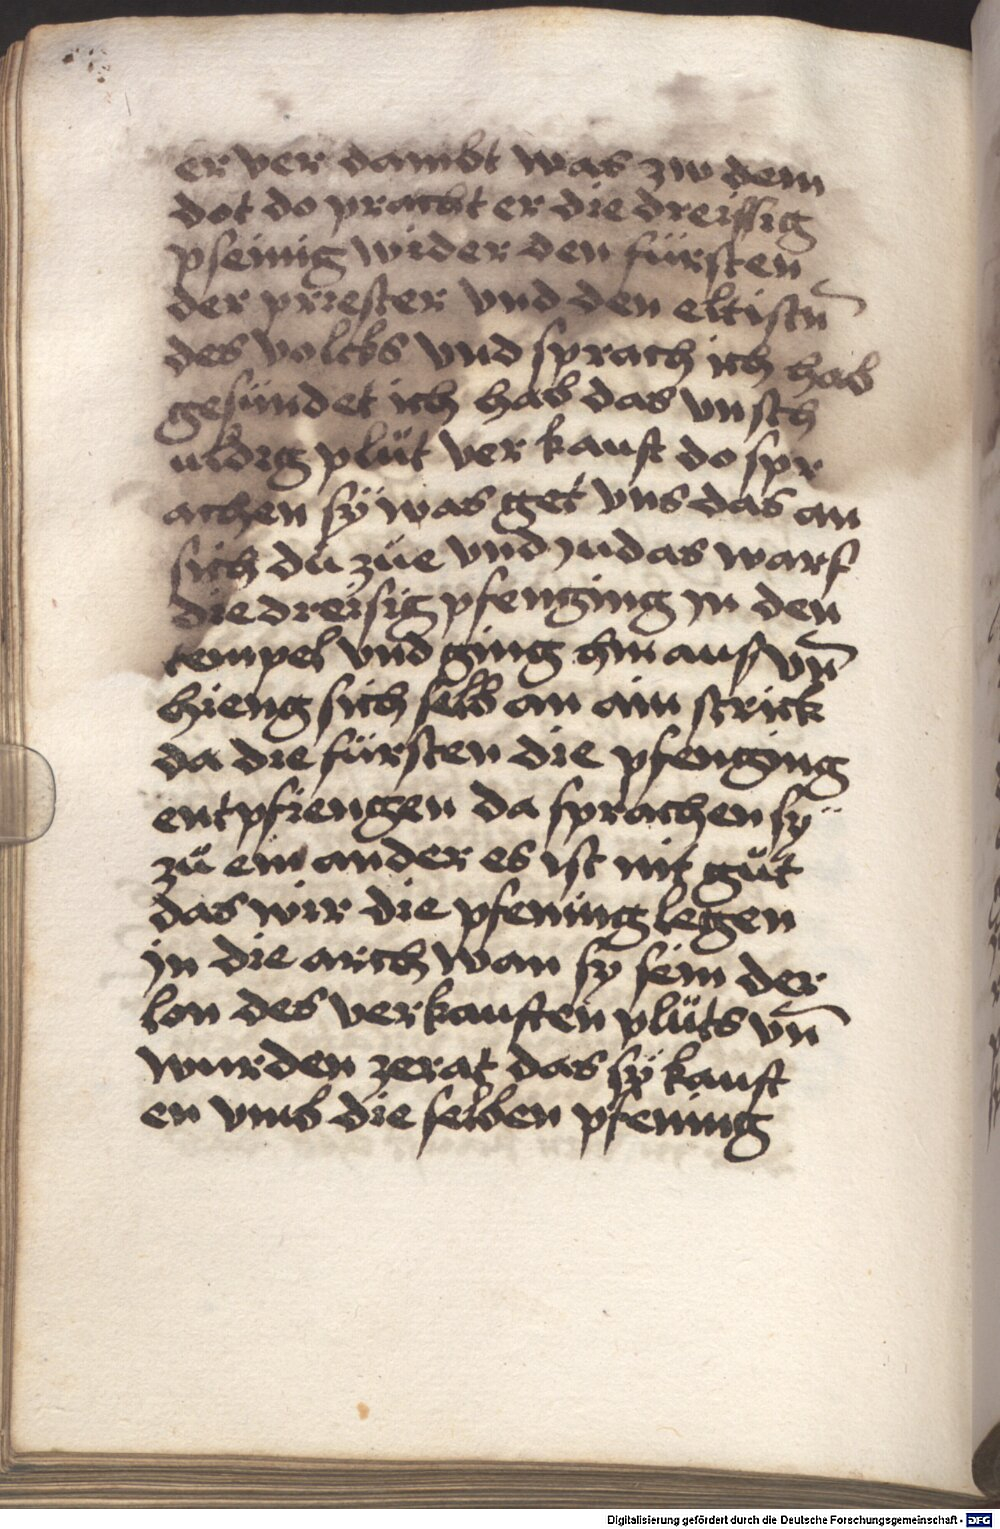 er ver dambt was zw dem
dot do pracht er die dreissig
pfeinig wider den fürsten
der priester vnd den eltistn̄
des volcks vnd sprach ich hab
gesündet ich hab das vnsch
uldig plüt ver kauft do spr
achen sÿ was get vns das an
sich du züe vnd judas warf
die dreisig pfenging jn den
tempel vnd ging hin aus vn̄
hieng sich selb an ain strick
da die fürsten die pfenging
entpfiengen da sprachen sÿ
zů ein ander es ist nit gůt
das wir die pfening legen
jn die arch wan sy sein der
lon des verkauften plüts vn̄
wurden zerat das sÿ kauft
en vmb die selben pfening
Digitalisierung gefördert durch die Deutsche Forschungsgemeinschaft - DFG